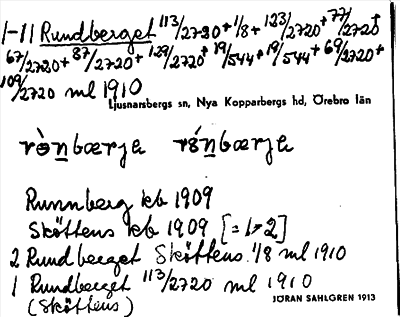 1-11 Rundberget 113/2720 + 1/8 + 123/2720 + 77/2720 +
67/2720 + 87/2720 + 129/2720 + 19/544 + 19/544 + 69/2720 +
109/2720 ml 1910
Ljusnarsbergs sn, Nya Kopparbergs hd, Örebro län
rònbærja rónbærja
Runnberg kb 1909
Sköttens kb 1909 [= 1, 2]
2 Rundberget Sköttens 1/8 ml 1910
1 Rundberget 113/2720 ml 1910
(Sköttens)
JÖRAN SAHLGREN 1913